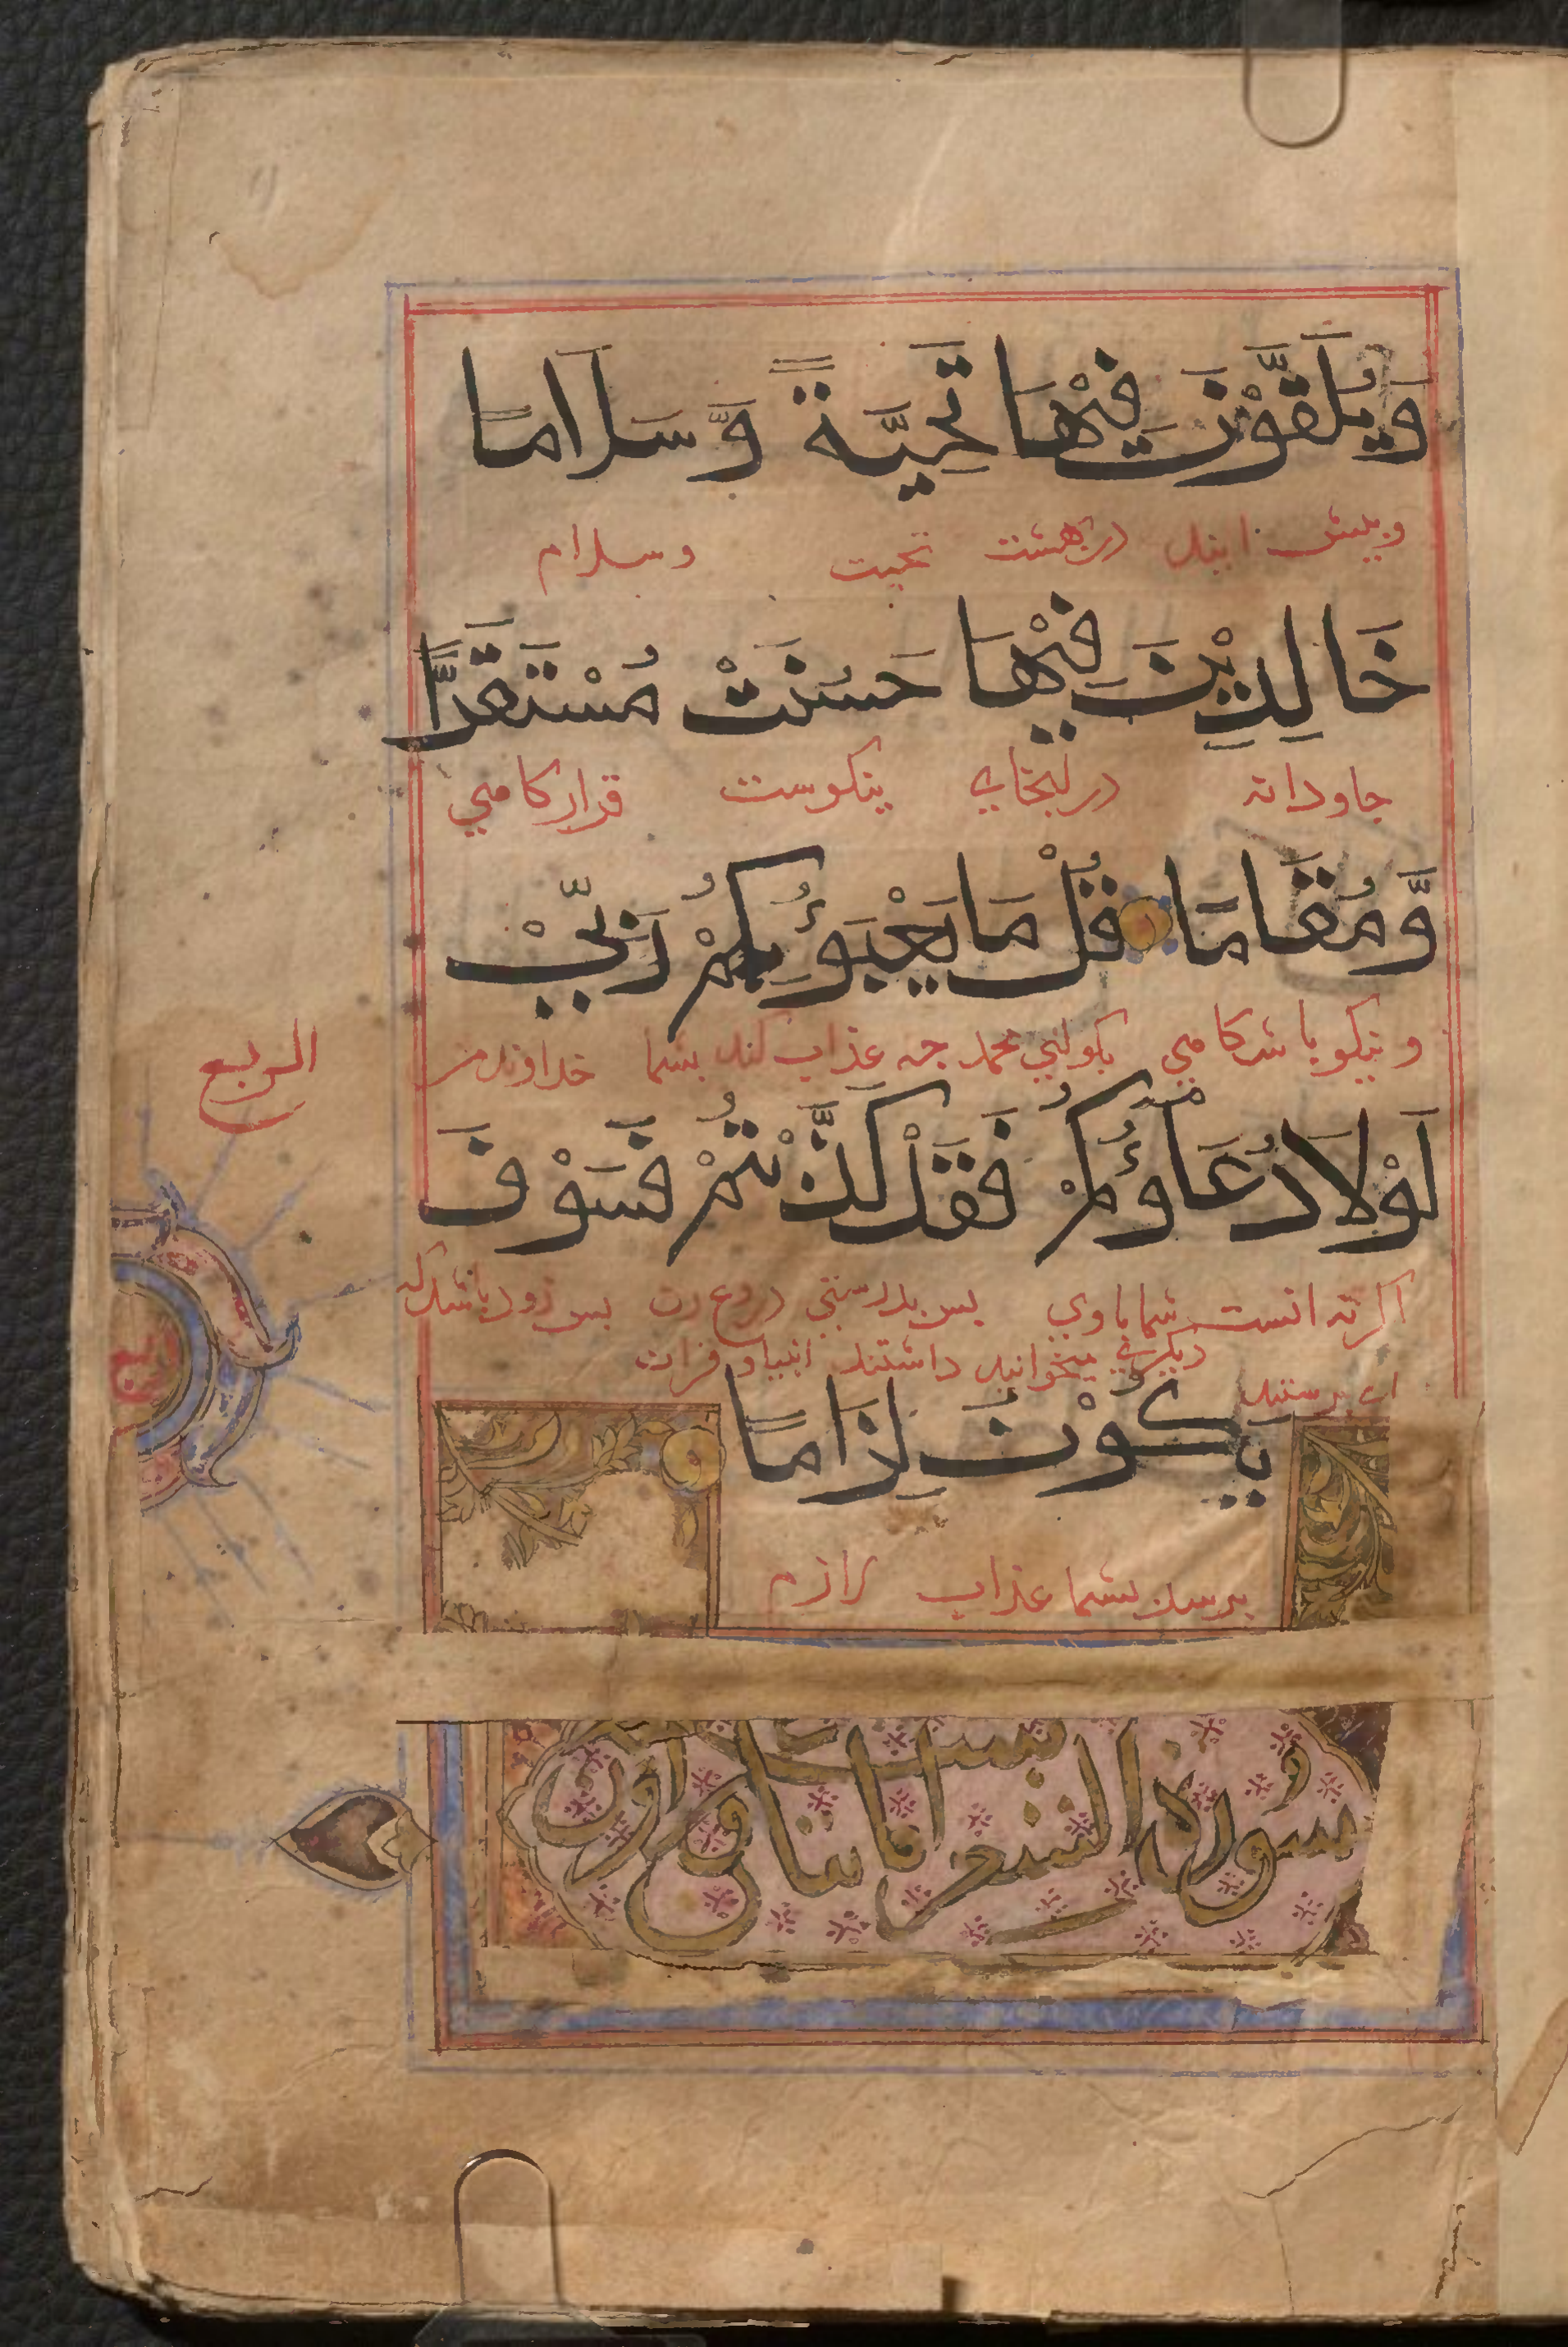 وَيُلَقَّوْنَ فِيْهَا تَحِيَّةً وَّسَلَامًا
وبیش ایند در بهشت تحیت وسلام
خَالِدِيْنَ فِيْهَا حَسُنَتْ مُسْتَقَرًّا
جاودانه در اینجای نیکوست قرارکاهی
وَّمُقَامًا قُلْ مَا يَعْبَؤُ بِكُمْ رَبِّيْ
ونیکو باشدکاهی بکو ای محمد چه عذاب کند بشما خداوند من
الربع
لَوْلَا دُعَاؤُكُمْ فَقَدْ كَذَّبْتُمْ فَسَوْفَ
اکر نه انست شما باوی پس بدرستی دروغ زن پس زود باشد که
دیکری میخوانید داشتند انبیا و قران
ای پرستند
يَكُوْنُ لِزَامًا
برسد بشما عذاب لازم
سورة الشعرا مائتان و